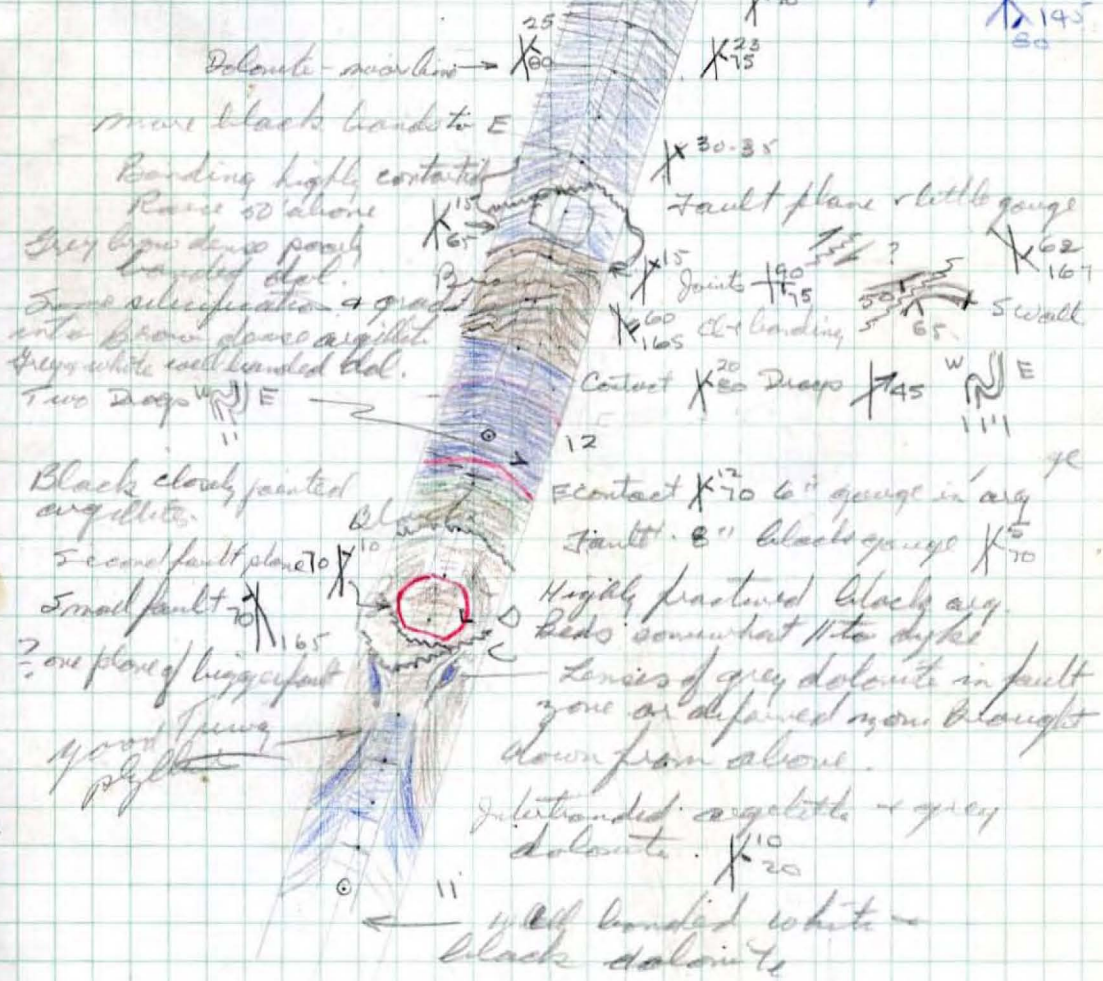 145
80
25
Dolomite - 80
23
75
more black bands to E
Banding highly contorted
30-35
Raise 50' above
15
65
Fault plane + little gouge
Grey brow dense poorly
banded dol.
15
Joints 90
75
?
62
167
Some silicification & grades
50
65
S wall
into brown dense argillite
60
165
Cl + banding
Grey & white well banded dol.
Contact 20
80 Drags 45
W E
Two Drags W E
12
Black closely jointed
argillite.
E contact 12
70 6" gouge in arg
Bl
Fault. 8" black gouge 5
70
Second fault plane 70 10
Small fault 70
165
Highly fractured black arg.
Beds somewhat // to dyke
? one plane of bigger fault
Lenses of grey dolomite in fault
zone or deformed zone Brought
down from above.
good
Interbanded argillite + grey
dolomite. 10
20
11
well banded white
black dolomite